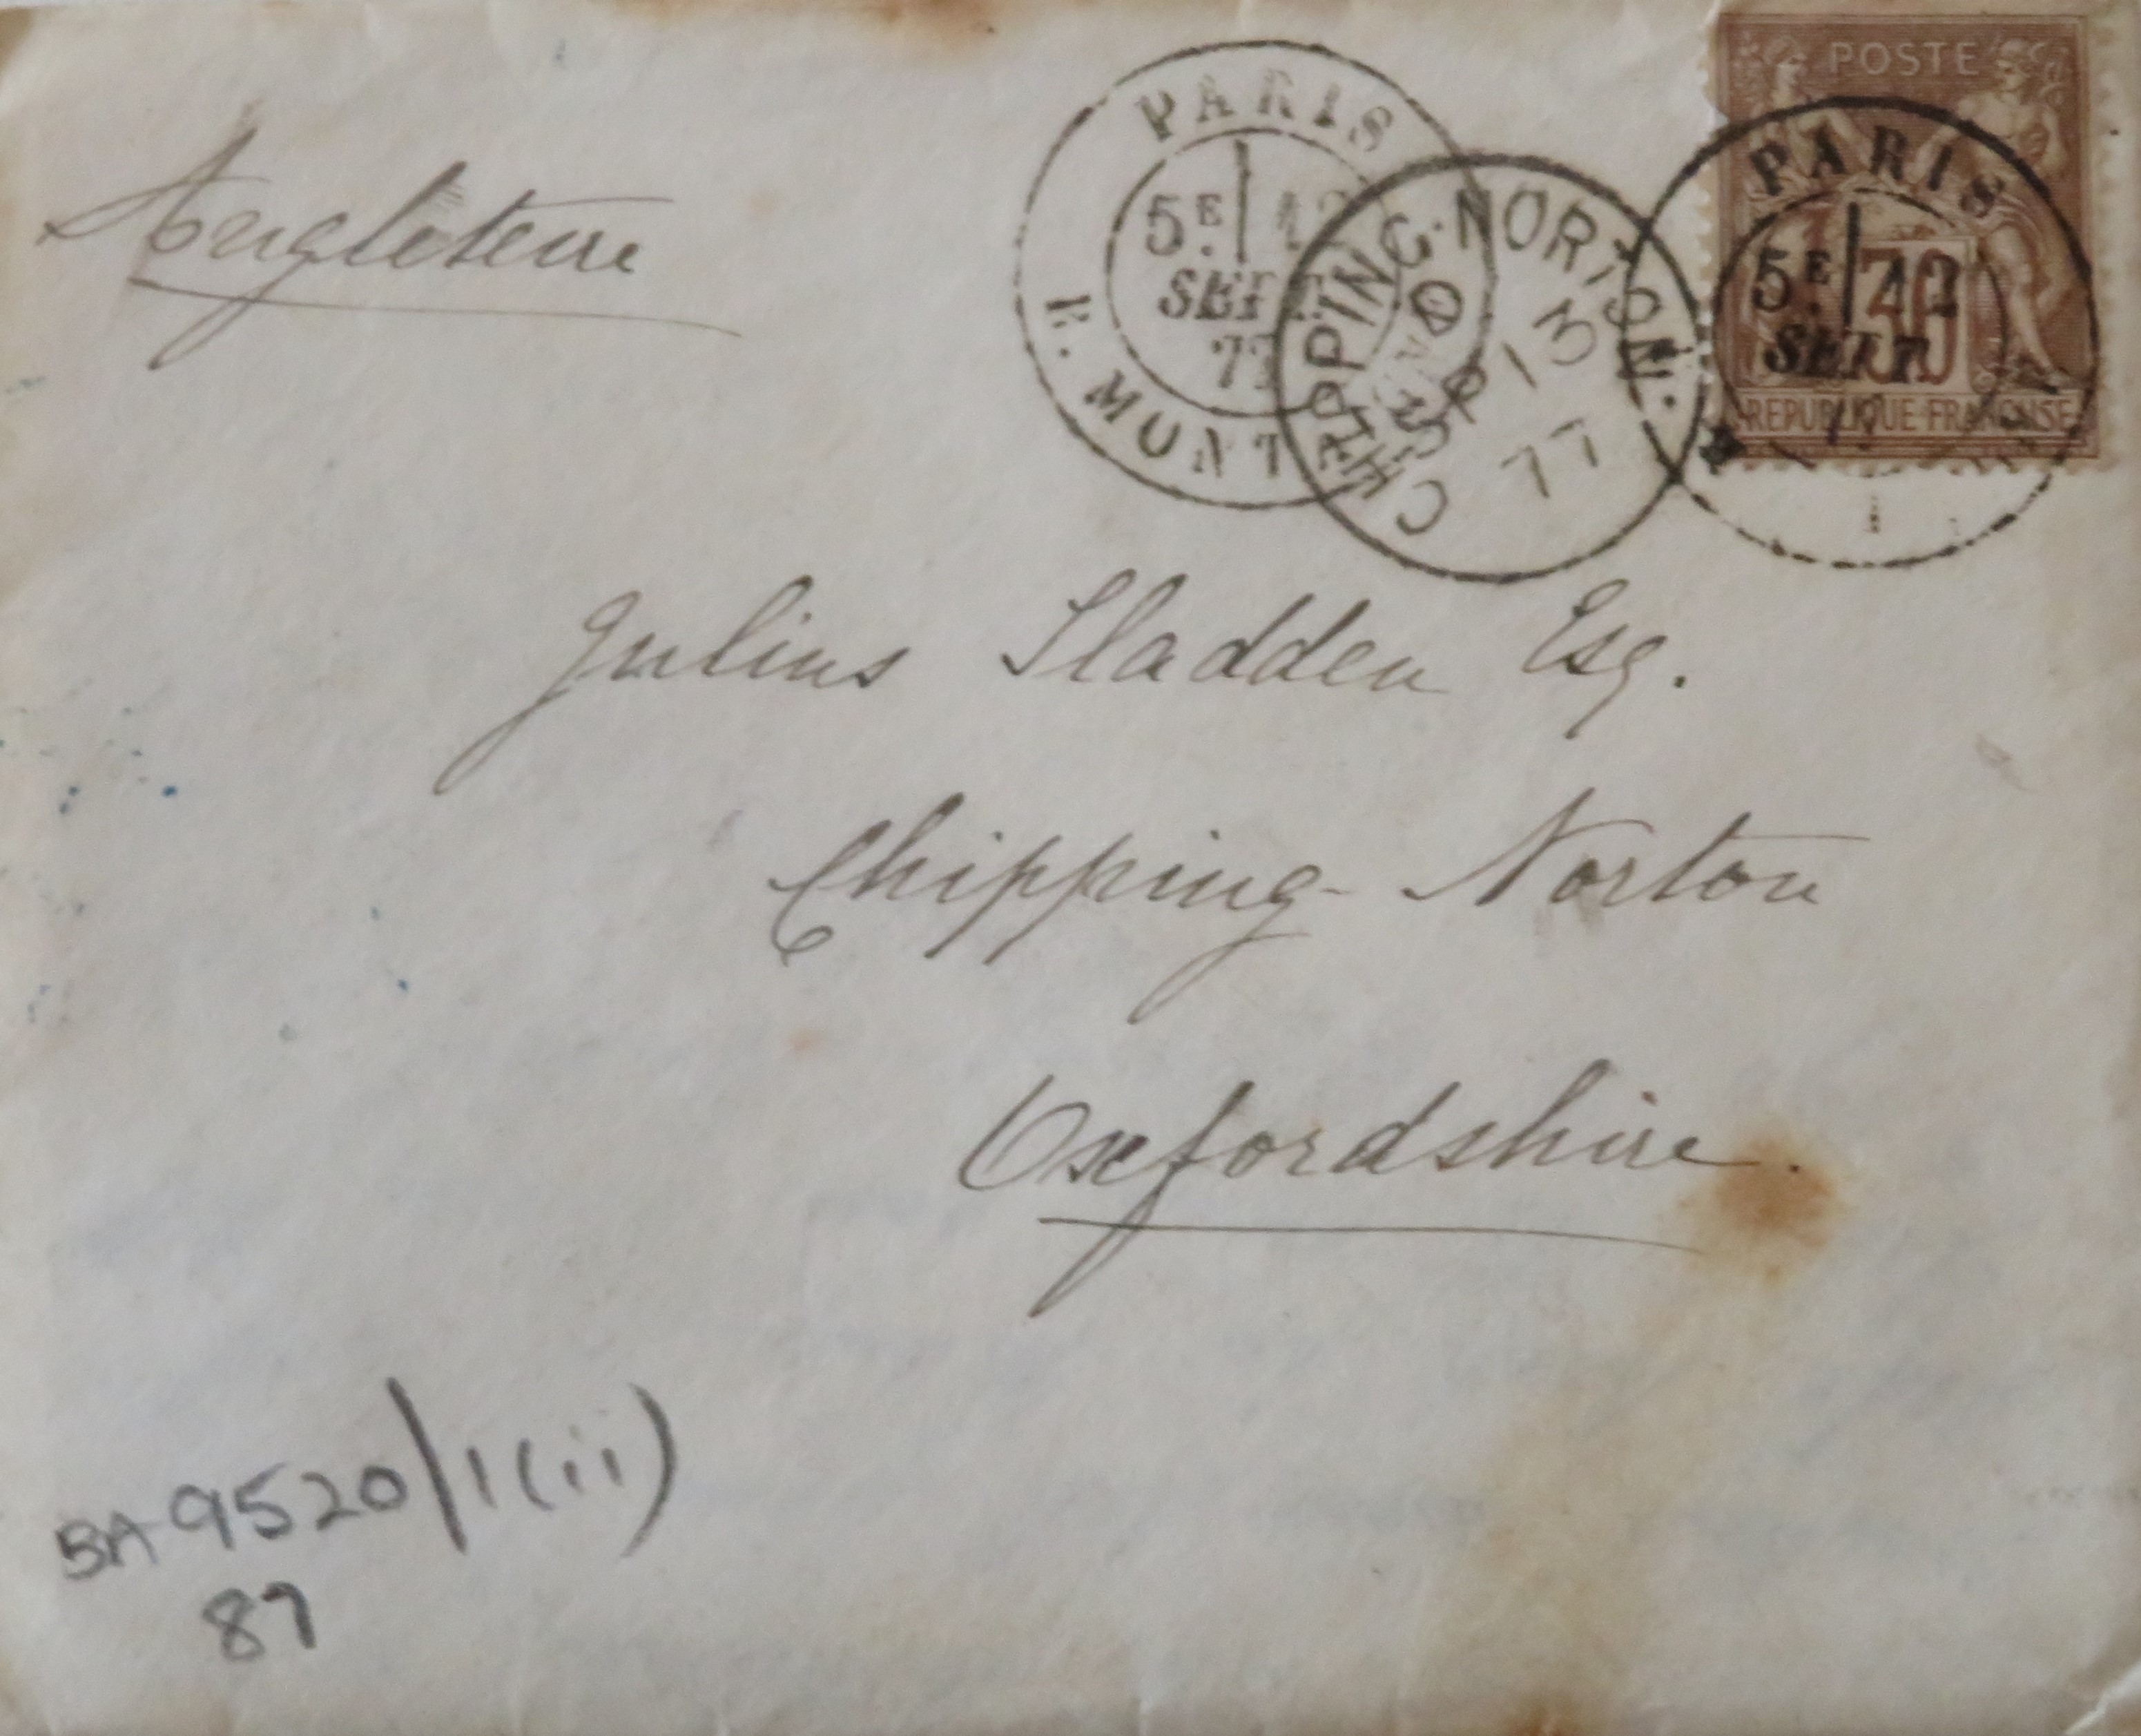 Angleterre
POSTE
30
REPUBLIQUE FRANÇAISE
PARIS
5E 12
SEPT
PARIS
5E 12
SEPT
77
R. MONT
CHIPPING-NORTON.
SP 13
77
Julius Sladden Esq.
Chipping-Norton
Oxfordshire.
BA 9520/1(ii)
87